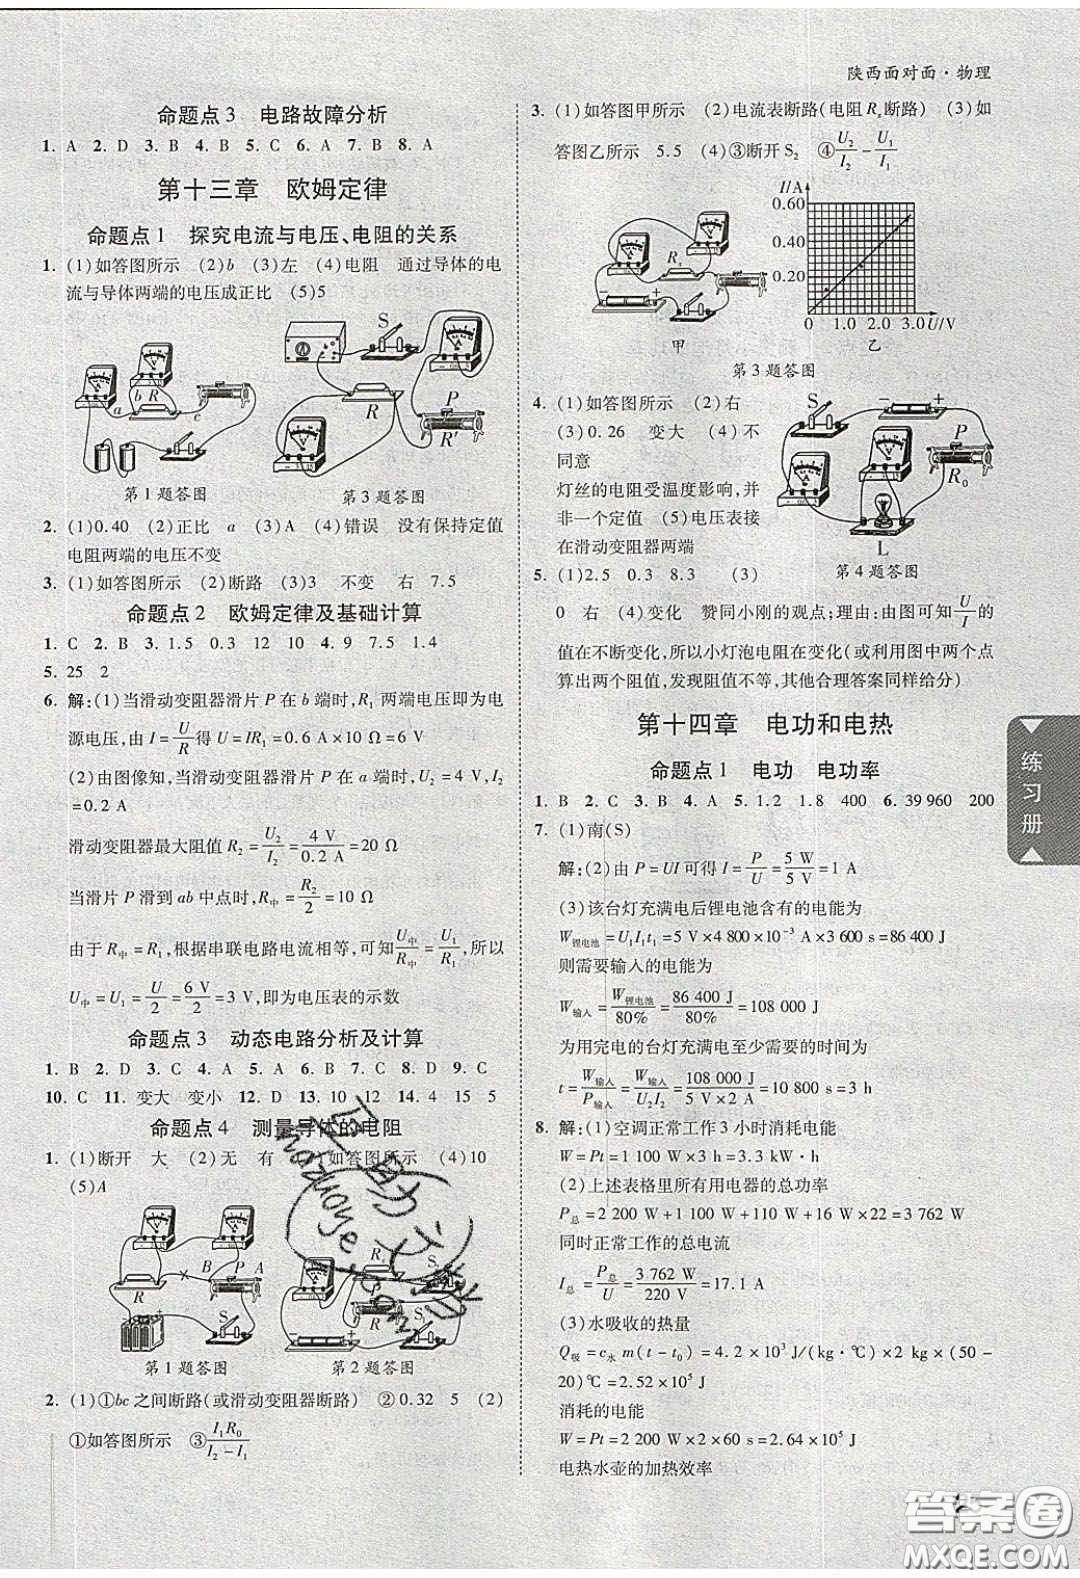 陕西面对面·物理
命题点3 电路故障分析
1. A 2. D 3. B 4. B 5. C 6. A 7. B 8. A
第十三章 欧姆定律
命题点1 探究电流与电压、电阻的关系
1. (1)如答图所示 (2)b (3)左 (4)电阻 通过导体的电
流与导体两端的电压成正比 (5)5
R
a
b
c
S
P
R
R′
第1题答图
第3题答图
2. (1)0.40 (2)正比 a (3)A (4)错误 没有保持定值
电阻两端的电压不变
3. (1)如答图所示 (2)断路 (3)3 不变 右 7.5
命题点2 欧姆定律及基础计算
1. C 2. B 3. 1.5 0.3 12 10 4. 9 7.5 1.4
5. 25 2
6. 解:(1)当滑动变阻器滑片 P 在 b 端时,R₁ 两端电压即为电
源电压,由 I = U/R 得 U = IR₁ = 0.6 A × 10 Ω = 6 V
(2)由图像知,当滑动变阻器滑片 P 在 a 端时,U₂ = 4 V,I₂
= 0.2 A
滑动变阻器最大阻值 R₂ = U₂/I₂ = 4 V/0.2 A = 20 Ω
当滑片 P 滑到 ab 中点时,R中 = R₂/2 = 10 Ω
由于 R中 = R₁,根据串联电路电流相等,可知 U中/R中 = U₁/R₁,所以
U中 = U₁ = U/2 = 6 V/2 = 3 V,即为电压表的示数
命题点3 动态电路分析及计算
1. B 2. D 3. C 4. A 5. A 6. B 7. C 8. D 9. C
10. C 11. 变大 变小 12. D 13. 10 12 14. 4 15 5
命题点4 测量导体的电阻
1. (1)断开 大 (2)无 有 (3)如答图所示 (4)10
(5)A
B P A
R
S
第1题答图
第2题答图
2. (1)①bc 之间断路(或滑动变阻器断路) ②0.32 5 (2)
①如答图所示 ③I₁R₀/(I₂ − I₁)
3. (1)如答图甲所示 (2)电流表断路(电阻 Rₓ断路) (3)如
答图乙所示 5.5 (4)③断开 S₂ ④U₂/I₂ − U₁/I₁
I/A
0.60
0.40
0.20
0 1.0 2.0 3.0 U/V
甲
乙
第3题答图
4. (1)如答图所示 (2)右
(3)0.26 变大 (4)不
同意
灯丝的电阻受温度影响,并
非一个定值 (5)电压表接
在滑动变阻器两端
S
P
R₀
L
第4题答图
5. (1)2.5 0.3 8.3 (3)
0 右 (4)变化 赞同小刚的观点;理由:由图可知 U/I 的
值在不断变化,所以小灯泡电阻在变化(或利用图中两个点
算出两个阻值,发现阻值不等,其他合理答案同样给分)
第十四章 电功和电热
命题点1 电功 电功率
1. B 2. C 3. B 4. A 5. 1.2 1.8 400 6. 39 960 200
7. (1)南(S)
解:(2)由 P = UI 可得 I = P/U = 5 W/5 V = 1 A
(3)该台灯充满电后锂电池含有的电能为
W锂电池 = U₁I₁t₁ = 5 V × 4 800 × 10⁻³ A × 3 600 s = 86 400 J
则需要输入的电能为
W输入 = W锂电池/80% = 86 400 J/80% = 108 000 J
为用完电的台灯充满电至少需要的时间为
t = W输入/P输入 = W输入/U₂I₂ = 108 000 J/5 V × 2 A = 10 800 s = 3 h
8. 解:(1)空调正常工作 3 小时消耗电能
W = Pt = 1 100 W × 3 h = 3.3 kW·h
(2)上述表格里所有用电器的总功率
P总 = 2 200 W + 1 100 W + 110 W + 16 W × 22 = 3 762 W
同时正常工作的总电流
I总 = P总/U = 3 762 W/220 V = 17.1 A
(3)水吸收的热量
Q吸 = c水 m(t − t₀) = 4.2 × 10³ J/(kg·℃) × 2 kg × (50 −
20)℃ = 2.52 × 10⁵ J
消耗的电能
W = Pt = 2 200 W × 2 × 60 s = 2.64 × 10⁵ J
电热水壶的加热效率
练习册
答案圈
MXQE.COM